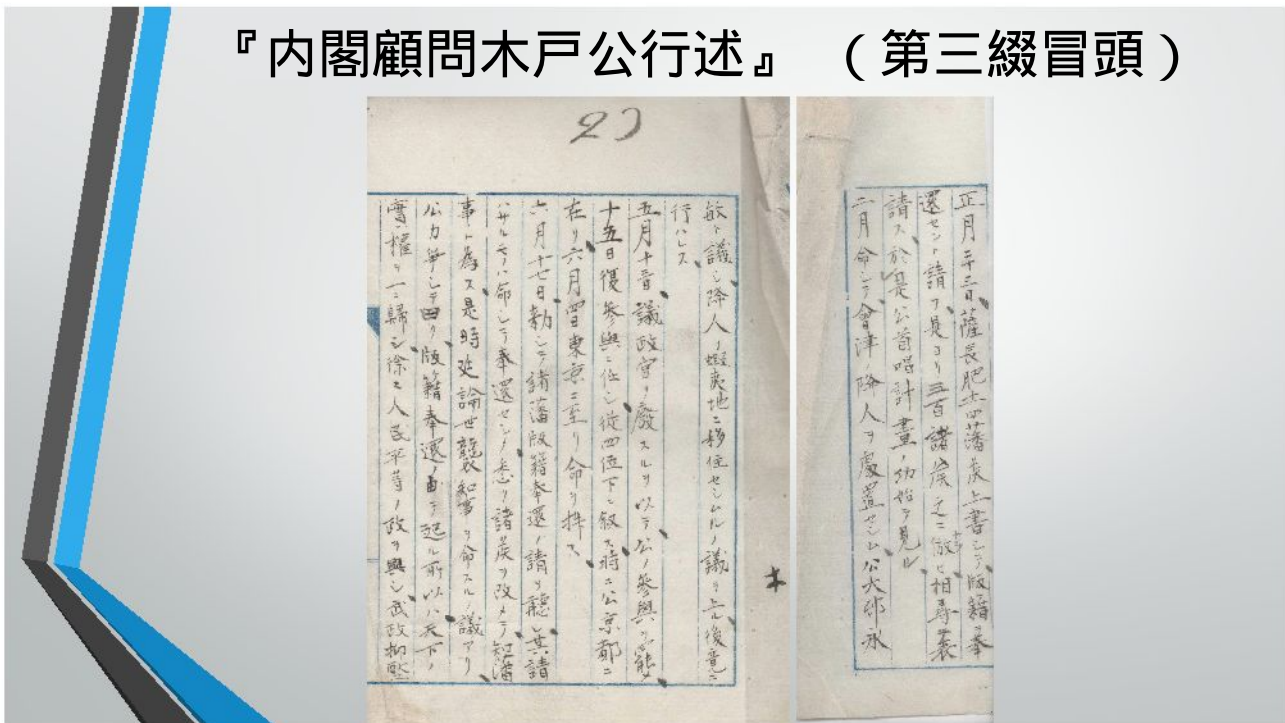 『内閣顧問木戸公行述』 （第三綴冒頭）
正月二十三日薩長肥土四藩侯上書シテ版籍ヲ奉
還セント請フ是ヨリ三百諸侯之ニ倣ヒ相尋テ表
請ス於是公首唱計畫ノ功始テ見ル
二月命シテ會津ノ降人ヲ處置セシム公大村永
敏ト議シ降人ノ蝦夷地ニ移住セシムルノ議ヲ上ル復竟ニ
行ハレス
五月十三日議政官ヲ廢スルヲ以テ公ノ参與ヲ罷
十五日復参與ニ任シ従四位下ニ叙ス時ニ公京都ニ
在リ六月四日東京ニ至リ命ヲ拝ス
六月十七日勅シテ諸藩版籍奉還ノ請ヲ聽シ其請
ハサルモノハ命シテ奉還セシメ悉ク諸侯ヲ改メテ知藩
事ト為ス是時廷論世襲知事ヲ命スルノ議アリ
公力争シテ曰ク版籍奉還ノ由テ起ル所以ハ天下ノ
實權ヲ一ニ歸シ徐ニ人民平等ノ政ヲ興シ武政抑壓